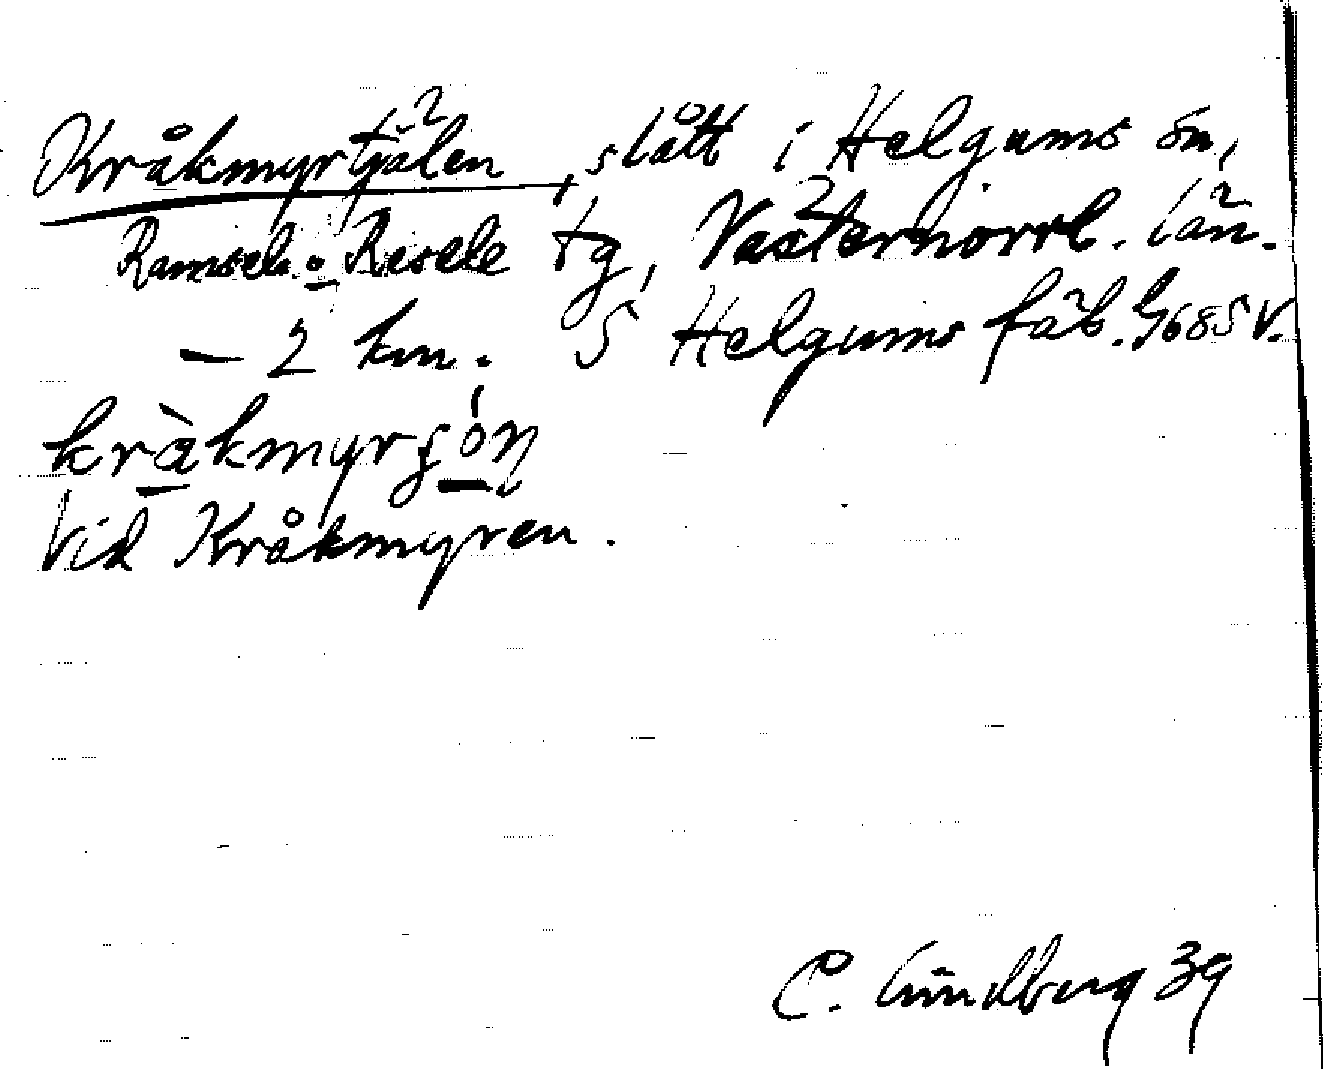 Kråkmyrtjälen, slått i Helgums sn,
Ramsele o Resele tg, Västernorrl. län.
– 2 km. S Helgums fäb. G685V.
kràkmyrşón
Vid Kråkmyren.
C. Lindberg 39